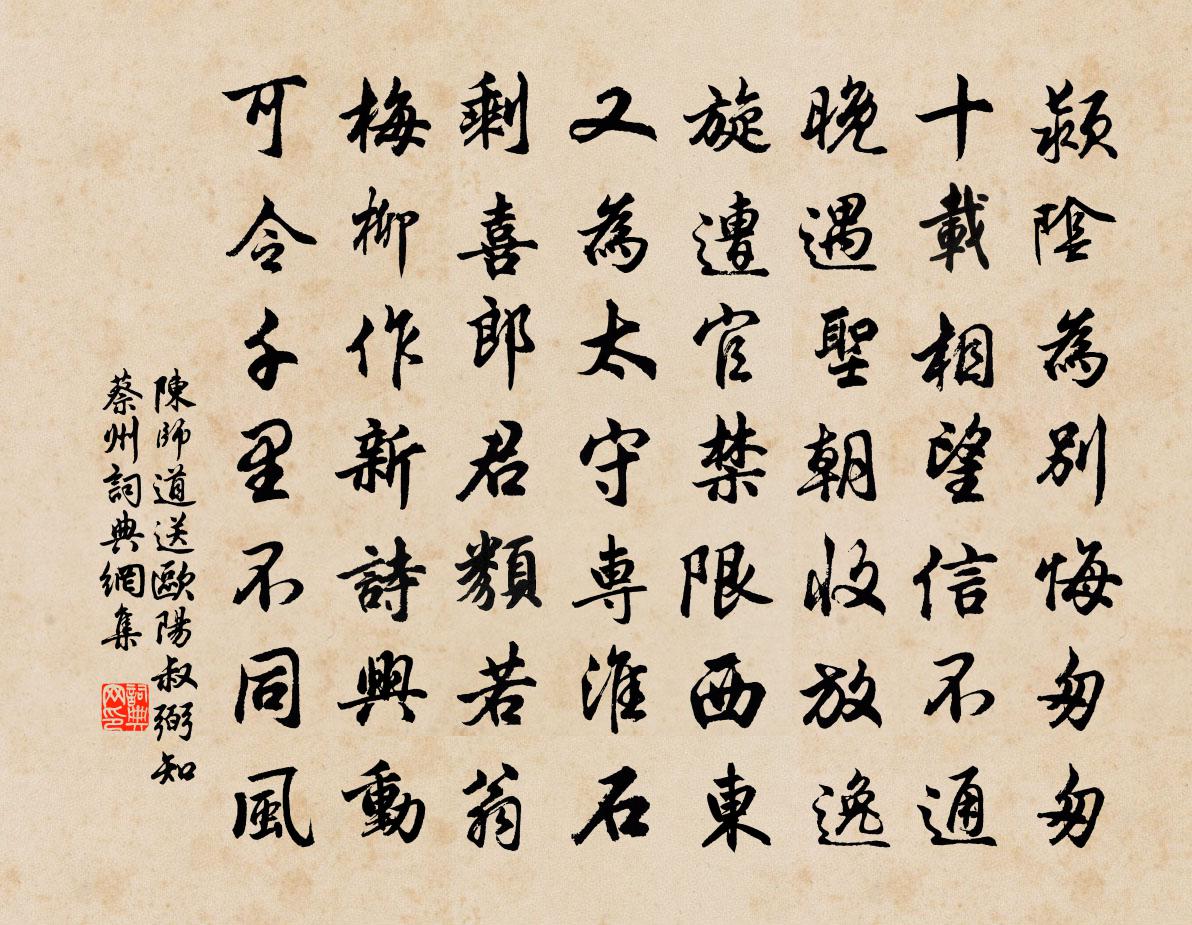 潁陰為別悔匆匆
十載相望信不通
晚遇聖朝收放逸
旋遭官禁限西東
又為太守専淮石
剩喜郎君類若翁
梅柳作新詩興動
可令千里不同風
陳師道送歐陽叔弼知
蔡州詞典網集
詞典
网印